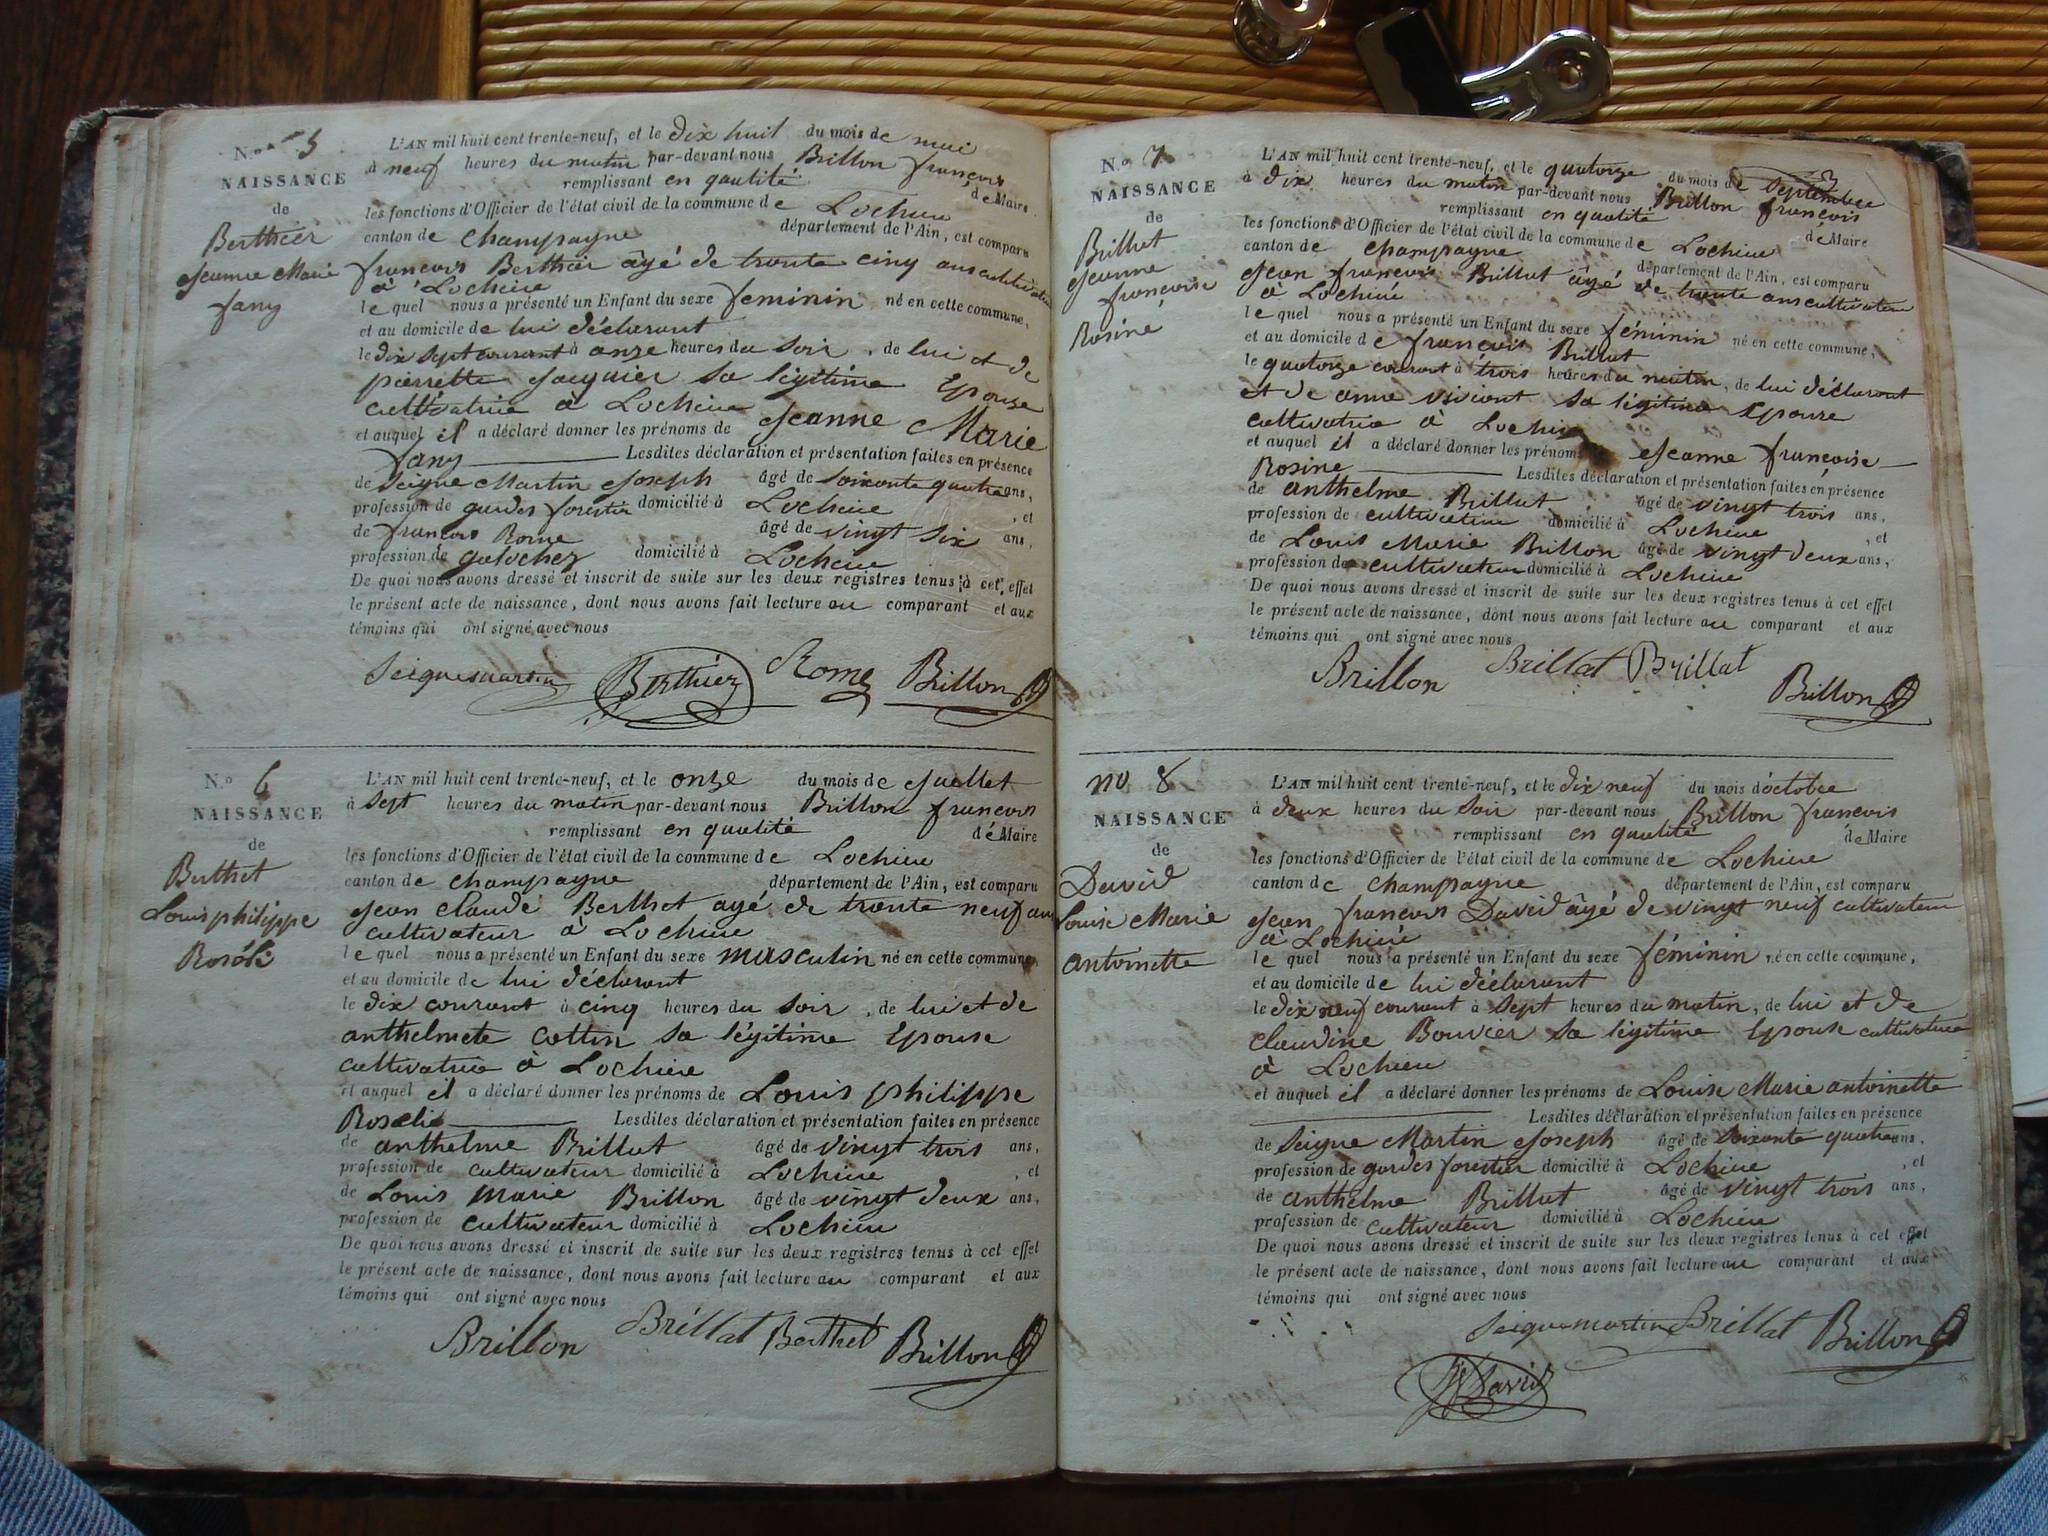 N.o 5
NAISSANCE
de
Berthier
Jeanne Marie
fany
L'AN mil huit cent trente-neuf, et le dix huit du mois de mai
à neuf heures du matin par-devant nous Brillon françois
remplissant en qualité de Maire
les fonctions d'Officier de l'état civil de la commune de Lochieu
canton de Champagne département de l'Ain, est comparu
françois Berthier agé de trente cinq ans cultivateur
à Lochieu
le quel nous a présenté un Enfant du sexe feminin né en cette commune,
et au domicile de lui déclarant
le dix sept courant à onze heures du soir, de lui et de
pierrette Jacquier sa légitime Epouse
cultivatrice à Lochieu
et auquel il a déclaré donner les prénoms de Jeanne Marie
fany Lesdites déclaration et présentation faites en présence
de Seigne Martin Joseph âgé de soixante quatre ans,
profession de gardes forestier domicilié à Lochieu, et
de françois Rome âgé de vingt six ans,
profession de galocher domicilié à Lochieu
De quoi nous avons dressé et inscrit de suite sur les deux registres tenus à cet effet
le présent acte de naissance, dont nous avons fait lecture au comparant et aux
témoins qui ont signé avec nous
Seiguemartin Berthier Rome Brillon
N.o 6
NAISSANCE
de
Berthet
Louis philippe
Rosélie
L'AN mil huit cent trente-neuf, et le onze du mois de Juellet
à sept heures du matin par-devant nous Brillon françois
remplissant en qualité de Maire
les fonctions d'Officier de l'état civil de la commune de Lochieu
canton de Champagne département de l'Ain, est comparu
Jean Claude Berthet agé de trente neuf ans
cultivateur à Lochieu
le quel nous a présenté un Enfant du sexe masculin né en cette commune,
et au domicile de lui déclarant
le dix courant à cinq heures du soir, de lui et de
anthelmete Cottin sa légitime Epouse
cultivatrice à Lochieu
et auquel il a déclaré donner les prénoms de Louis philippe
Rosélie Lesdites déclaration et présentation faites en présence
de anthelme Brillat âgé de vingt trois ans,
profession de cultivateur domicilié à Lochieu, et
de Louis Marie Brillon âgé de vingt deux ans,
profession de cultivateur domicilié à Lochieu
De quoi nous avons dressé et inscrit de suite sur les deux registres tenus à cet effet
le présent acte de naissance, dont nous avons fait lecture au comparant et aux
témoins qui ont signé avec nous
Brillon Brillat Berthet Brillon
N.o 7
NAISSANCE
de
Brillat
Jeanne
françoise
Rosine
L'AN mil huit cent trente-neuf, et le quatorze du mois de Septembre
à dix heures du matin par-devant nous Brillon françois
remplissant en qualité de Maire
les fonctions d'Officier de l'état civil de la commune de Lochieu
canton de Champagne département de l'Ain, est comparu
Jean françois Brillat âgé de trente ans cultivateur
à Lochieu
le quel nous a présenté un Enfant du sexe féminin né en cette commune,
et au domicile de françois Brillat
le quatorze courant à trois heures du matin, de lui déclarant
et de anne vivient sa légitime Epouse
cultivatrice à Lochieu
et auquel il a déclaré donner les prénoms Jeanne françoise
Rosine Lesdites déclaration et présentation faites en présence
de anthelme Brillat âgé de vingt trois ans,
profession de cultivateur domicilié à Lochieu, et
de Louis Marie Brillon âgé de vingt deux ans,
profession de cultivateur domicilié à Lochieu
De quoi nous avons dressé et inscrit de suite sur les deux registres tenus à cet effet
le présent acte de naissance, dont nous avons fait lecture au comparant et aux
témoins qui ont signé avec nous
Brillon Brillat Brillat Brillon
no 8
NAISSANCE
de
David
Louise Marie
antoinette
L'AN mil huit cent trente-neuf, et le dix neuf du mois d'octobre
à deux heures du soir par-devant nous Brillon françois
remplissant en qualité de Maire
les fonctions d'Officier de l'état civil de la commune de Lochieu
canton de Champagne département de l'Ain, est comparu
Jean françois David âgé de vingt neuf cultivateur
à Lochieu
le quel nous a présenté un Enfant du sexe féminin né en cette commune,
et au domicile de lui déclarant
le dix neuf courant à sept heures du matin, de lui et de
Claudine Bouvier sa légitime Epouse cultivatrice
à Lochieu
et auquel il a déclaré donner les prénoms de Louise Marie antoinette
Lesdites déclaration et présentation faites en présence
de Seigne Martin Joseph âgé de soixante quatre ans,
profession de gardes forestier domicilié à Lochieu, et
de anthelme Brillat âgé de vingt trois ans,
profession de cultivateur domicilié à Lochieu
De quoi nous avons dressé et inscrit de suite sur les deux registres tenus à cet effet
le présent acte de naissance, dont nous avons fait lecture au comparant et aux
témoins qui ont signé avec nous
Seiguemartin Brillat Brillon
David